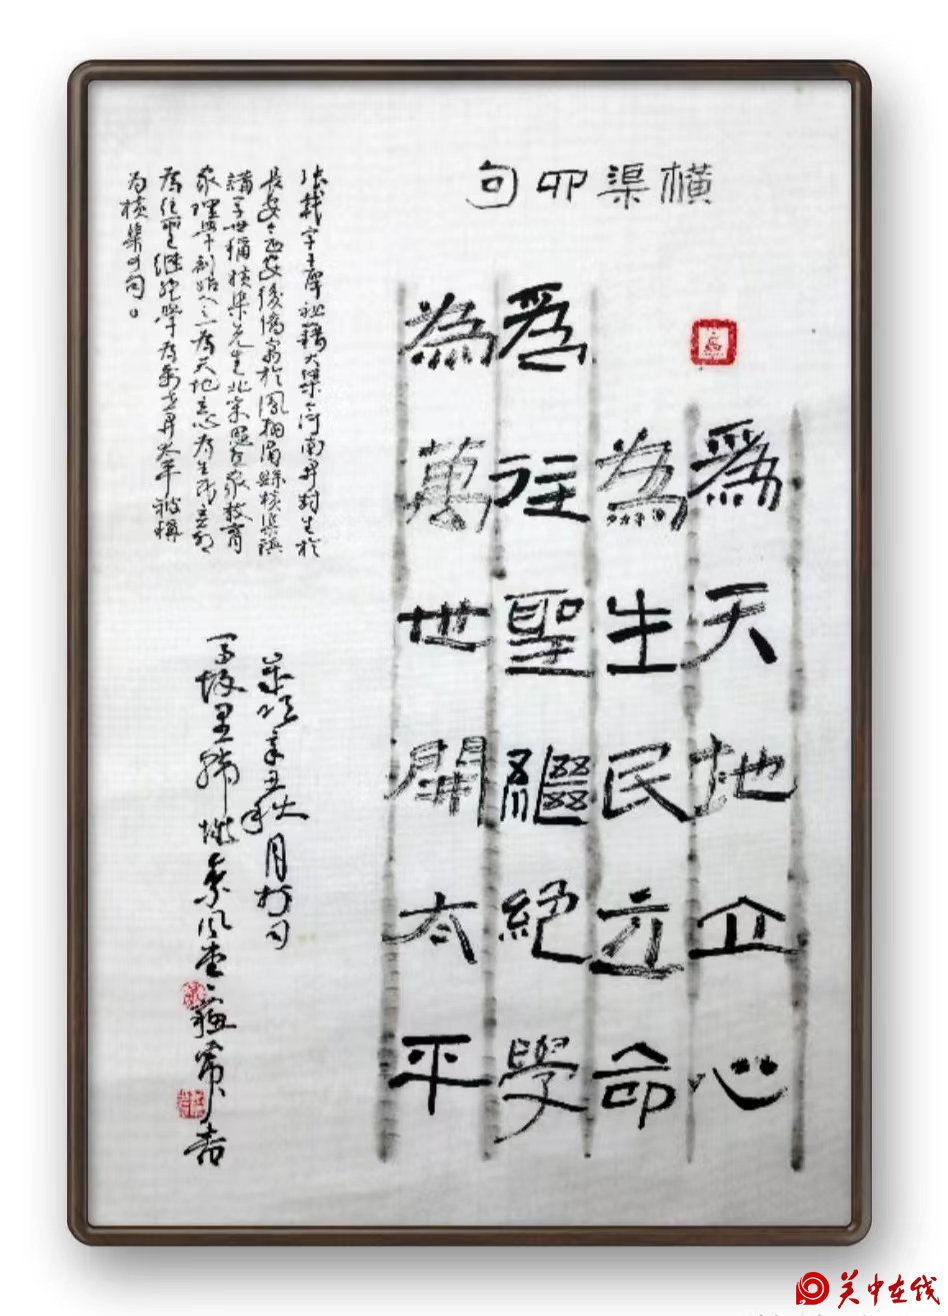 橫渠四句
爲天地立心
為生民立命
爲往聖繼絕學
為萬世開太平
張載字子厚祖籍大梁今河南開封生於
長安今西安後僑寓於鳳翔眉縣橫渠鎮
講學世稱橫渠先生北宋思想家教育
家理學創始人之一為天地立心為生民立命
為往聖繼絕學為萬世開太平被稱
為橫渠四句
辛丑秋月
关中在线